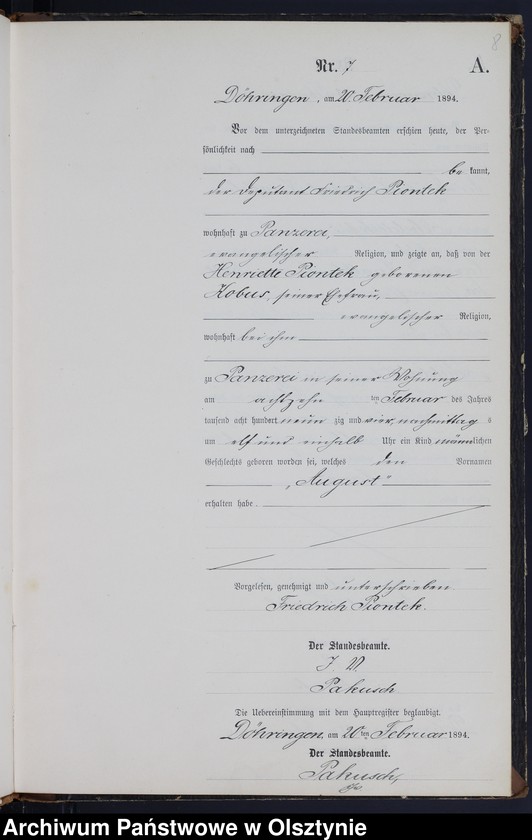 8
Nr. 7 A.
Döhringen, am 20. Februar 1894.
Vor dem unterzeichneten Standesbeamten erschien heute, der Per-
sönlichkeit nach
be kannt,
der Deputant Friedrich Piontek
wohnhaft zu Panzerei,
evangelischer Religion, und zeigte an, daß von der
Henriette Piontek geborenen
Kobus, seiner Ehefrau,
evangelischer Religion,
wohnhaft bei ihm
zu Panzerei in seiner Wohnung
am achtzehn ten Februar des Jahres
tausend acht hundert neun zig und vier, nachmittag s
um elf und einhalb Uhr ein Kind männlichen
Geschlechts geboren worden sei, welches den Vornamen
„August“
erhalten habe.
Vorgelesen, genehmigt und unterschrieben
Friedrich Piontek.
Der Standesbeamte.
J. V.
Pakusch
Die Uebereinstimmung mit dem Hauptregister beglaubigt.
Döhringen, am 20ten Februar 1894.
Der Standesbeamte.
Pakusch
Archiwum Państwowe w Olsztynie